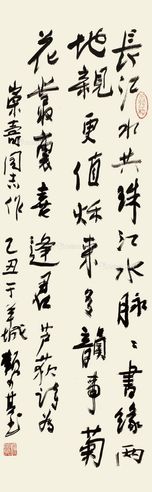 長江水共珠江水脉々書緣两
地親更值秋來多韻事菊
花叢裏喜逢君芦荻詩为
崇壽同志作
乙丑于羊城